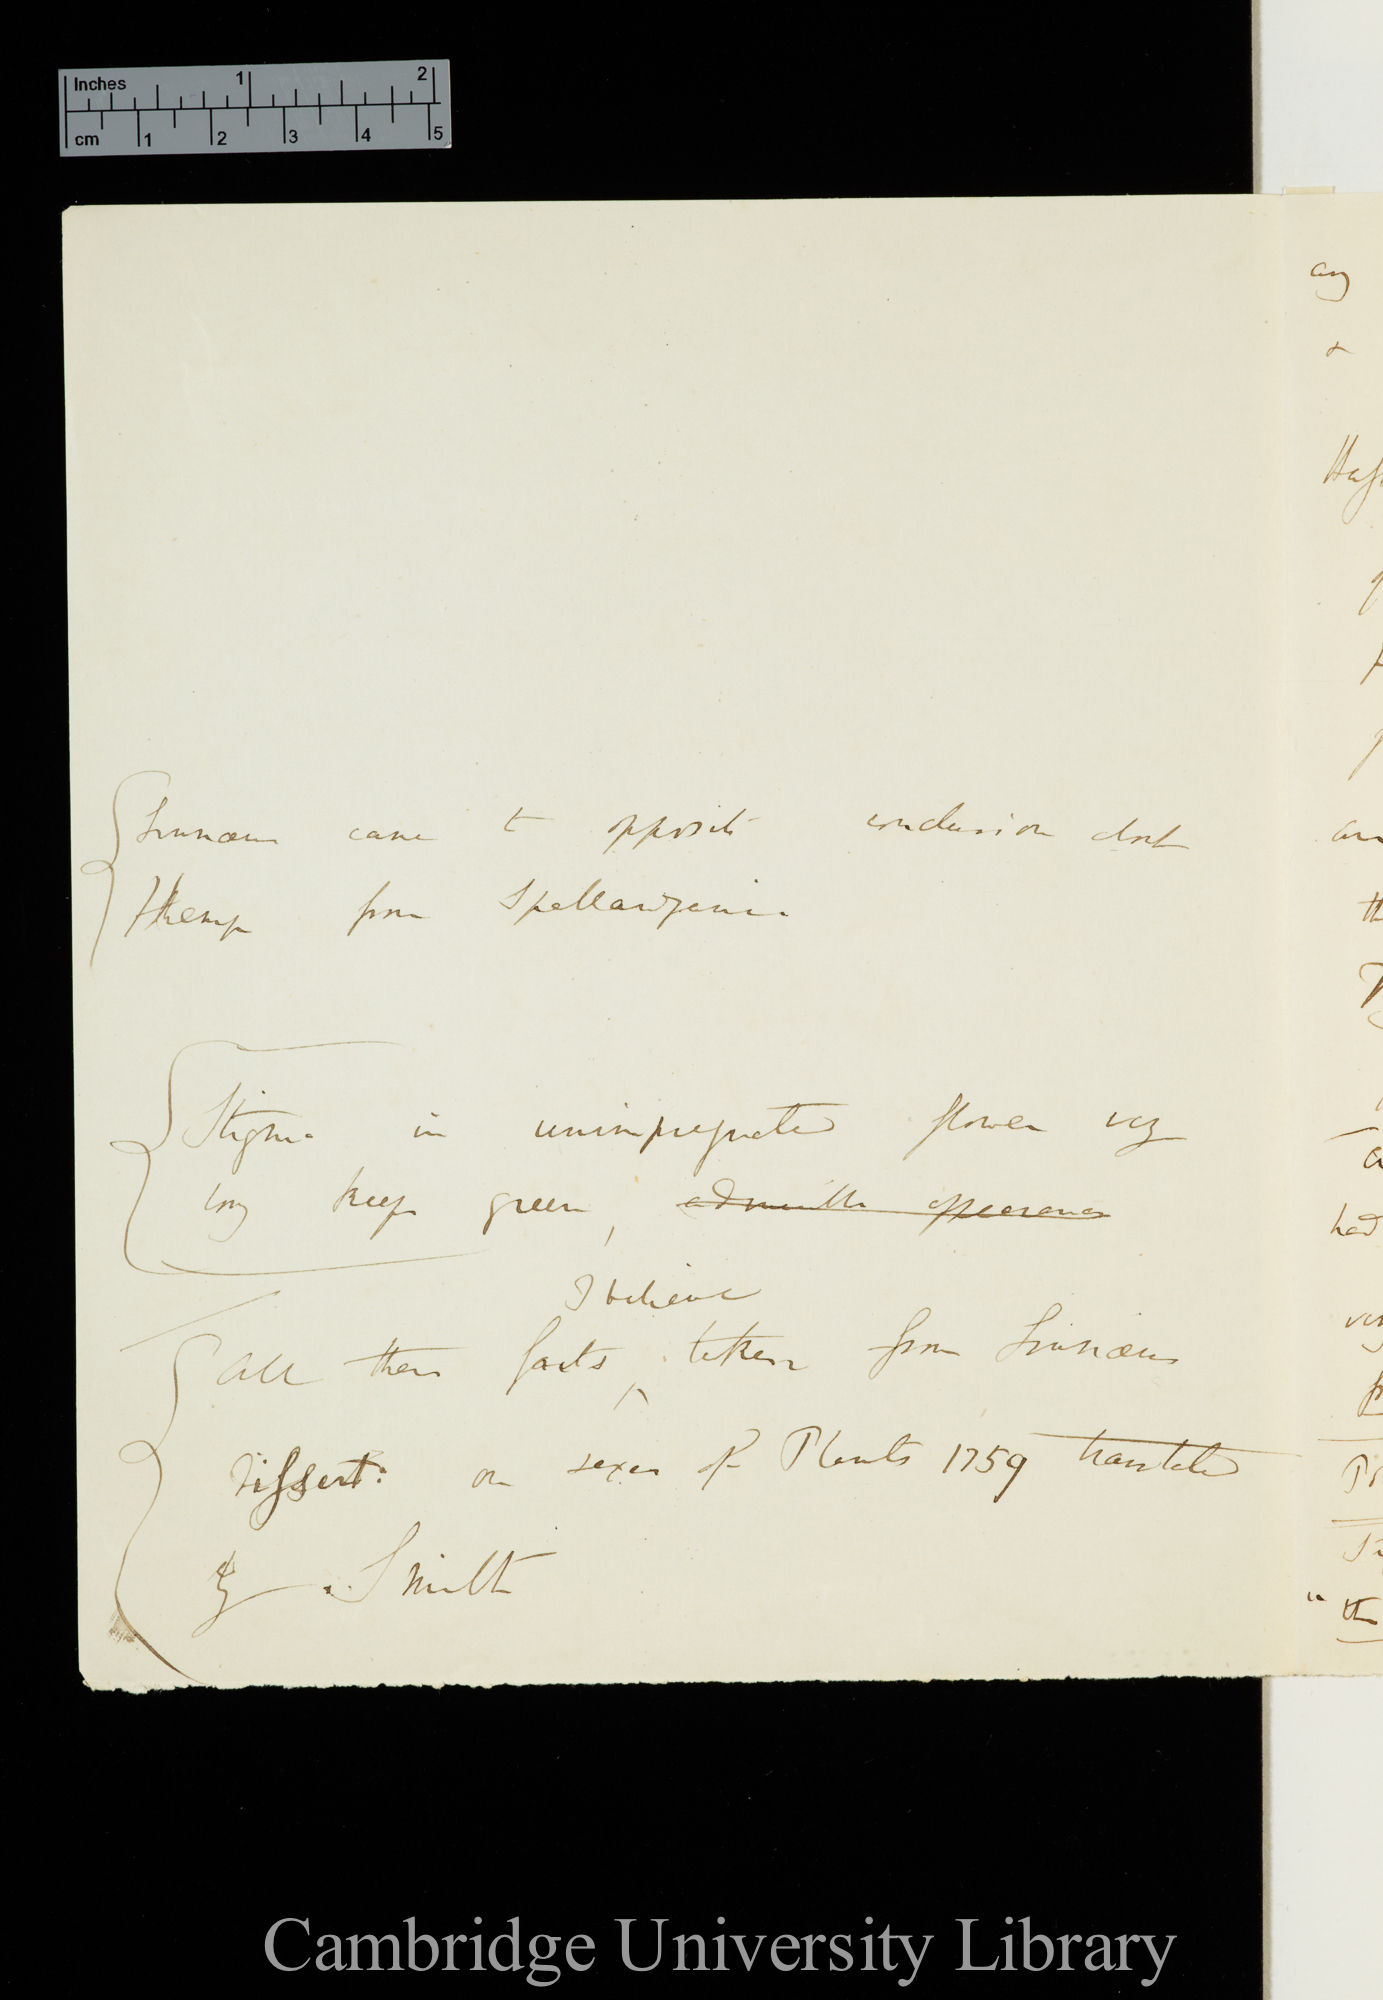 Inches 1 2
cm 1 2 3 4 5
Linnæus came to opposite conclusion about
Hemp from Spallanzani.
Stigma in unimpregnated flower very
long keeps green, appearance
I believe
All these facts taken from Linnæus
Dissert: on sexes of Plants 1759 translated
by Smith
any
+
had
very
"the
Cambridge University Library